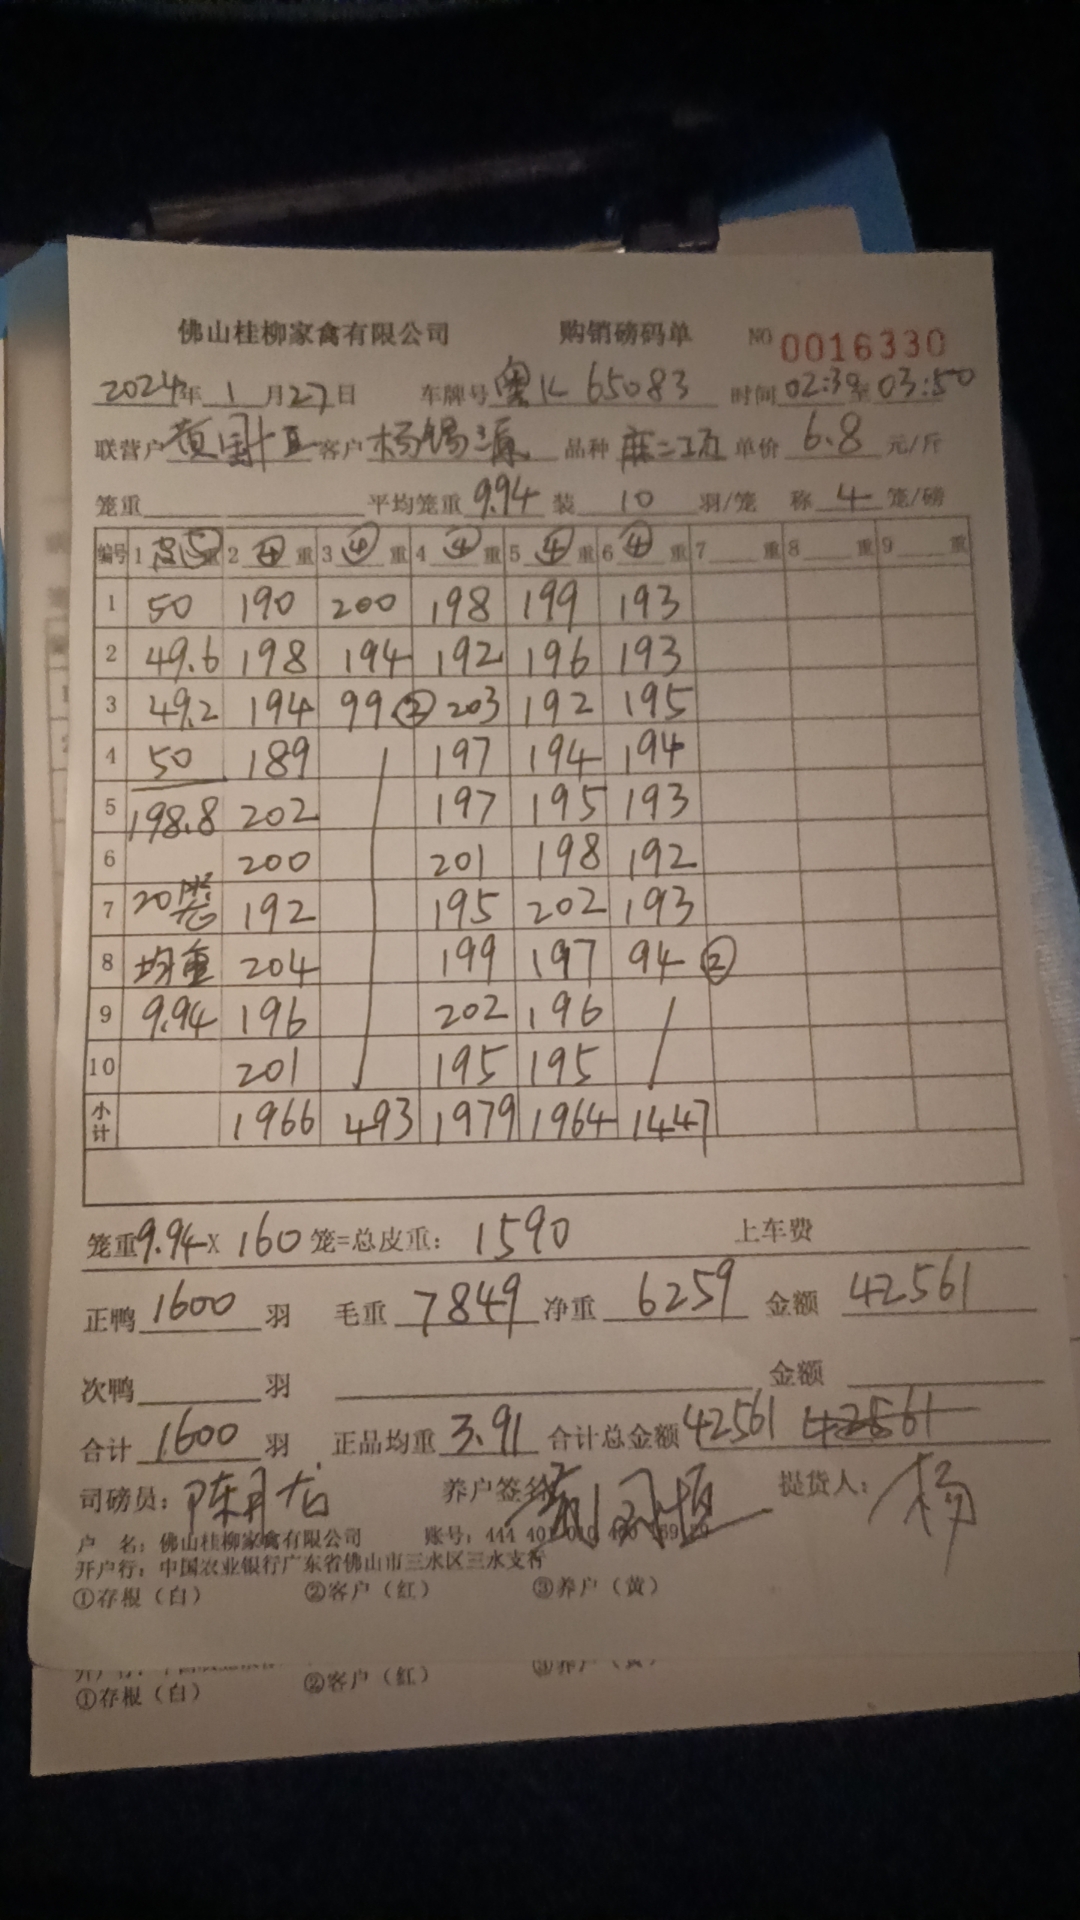 佛山桂柳家禽有限公司 购销磅码单 NO 0016330
2024年 1 月 27 日 车牌号 粤K 65083 时间 02:30 至 03:50
联营户 黄国恒 客户 杨锡源 品种 麻二 单价 6.8 元/斤
笼重 平均笼重 9.94 装 10 羽/笼 称 4 笼/磅
编号 1 ⑤ 重 2 ④ 重 3 ④ 重 4 ④ 重 5 ④ 重 6 ④ 重 7 重 8 重 9 重
1 50 190 200 198 199 193
2 49.6 198 194 192 196 193
3 49.2 194 99 ② 203 192 195
4 50 189 197 194 194
5 198.8 202 197 195 193
6 200 201 198 192
7 20笼 192 195 202 193
8 均重 204 199 197 94 ②
9 9.94 196 202 196
10 201 195 195
小计 1966 493 1979 1964 1447
笼重 9.94 X 160 笼=总皮重: 1590 上车费
正鸭 1600 羽 毛重 7849 净重 6259 金额 42561
次鸭 羽 金额
合计 1600 羽 正品均重 3.91 合计总金额 42561 42561
司磅员: 陈月 养户签名 黄国恒 提货人: 杨
户 名: 佛山桂柳家禽有限公司 账号: 444 401 010 400
开户行: 中国农业银行广东省佛山市三水区三水支行
①存根(白) ②客户(红) ③养户(黄)
①存根(白) ②客户(红) ③养户(黄)